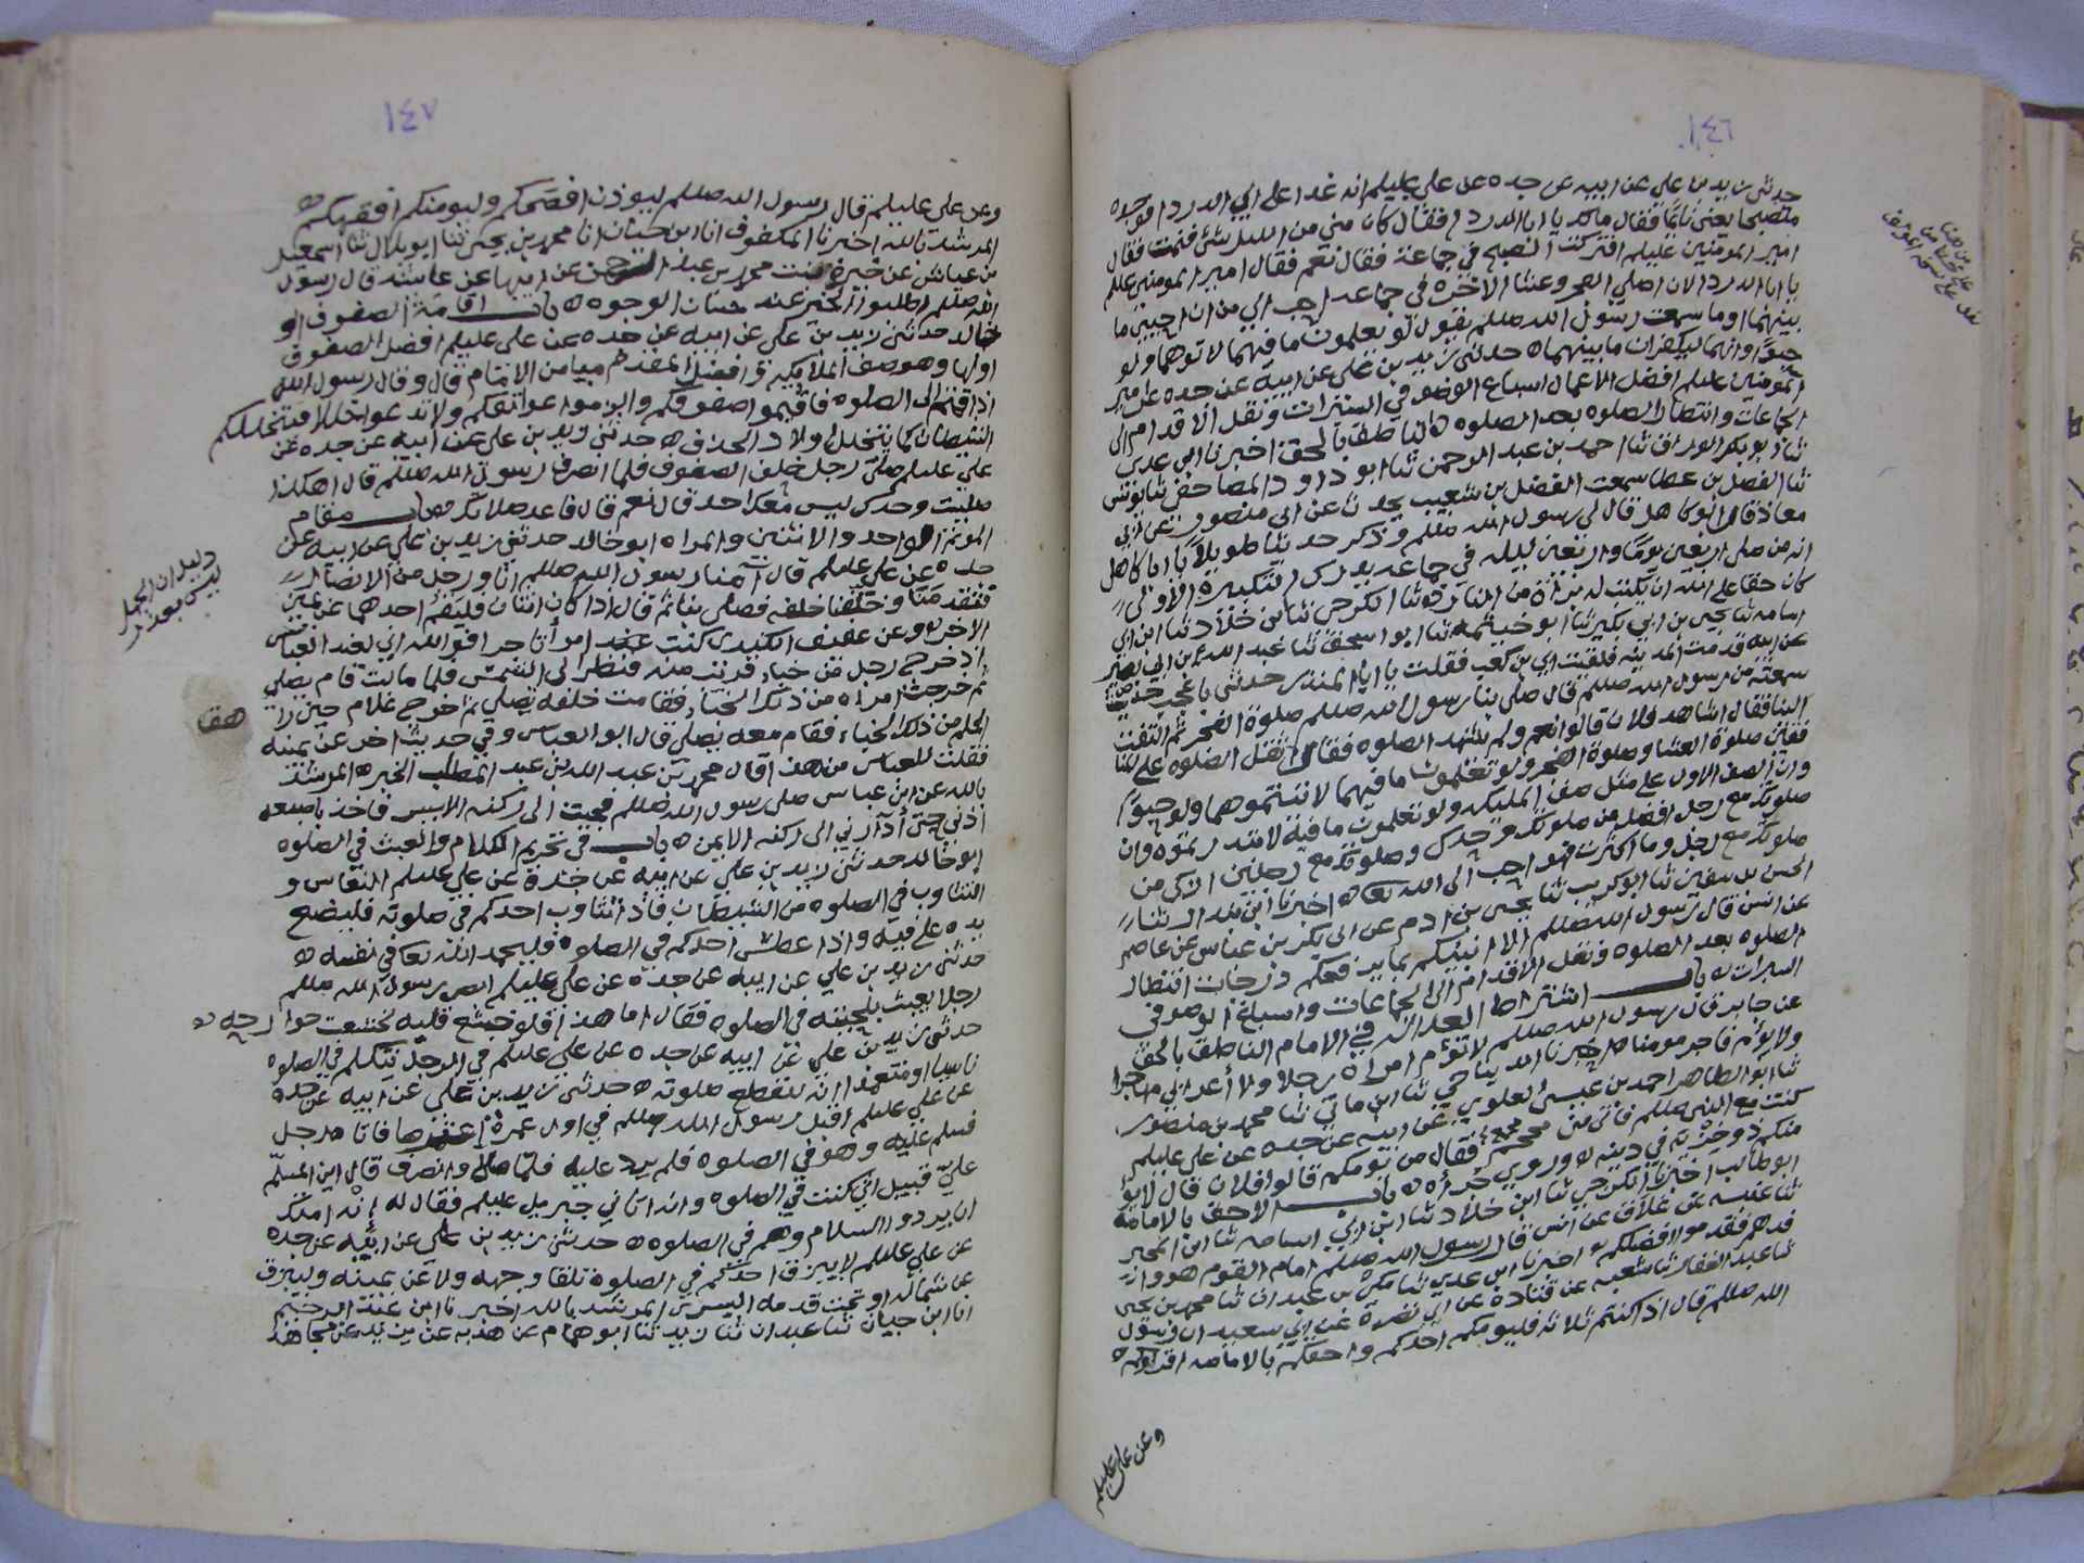 ١٤٦
حدثني زيد بن علي عن ابيه عن جده عن علي عليلم انه غدا على ابي الدرداء فوجده
متصبحا يعني نائما فقال مالك يا ابا الدرداء فقال كان مني من الليل شئ فنمت فقال
امير المومنين عليلم افتركت الصبح في جماعة فقال نعم فقال امير المومنين عليلم
يا ابا الدرداء لان اصلي الفجر وعشا الاخره في جماعه احب الي من ان احيي ما
بينهما اوما سمعت رسول الله صللم يقول لو يعلمون ما فيهما لاتوهما ولو
حبوًا وانهما ليكفران ما بينهما ه حدثني زيد بن علي عن ابيه عن جده عن امير
المومنين عليلم افضل الاعمال اسباغ الوضو في السبرات ونقل الاقدام الى
الجماعات وانتظار الصلوه بعد الصلوه ه الناطق بالحق اخبرنا ابن عدي
ثنا ابو بكر الوراق ثنا احمد بن عبد الرحمن ثنا ابو داود المصاحفي ثنا يونس
ثنا الفضل بن عطا سمعت الفضل بن شعيب يحدث عن ابي منصور عن ابي
معاذ قال ابو كاهل قال لي رسول الله صللم وذكر حديثا طويلا يا ابا كاهل
انه من صلى اربعين يوما واربعين ليله في جماعه يدرك التكبيره الاولى
كان حقا على الله ان يكتب له براة من النار ه وثنا الكرخي ثنا ابن خلاد ثنا ابن ابي
اسامه ثنا يحيى بن ابي بكير ثنا ابو خيثمه ثنا ابو اسحق ثنا عبد الله بن ابي بصير
عن ابيه قدمت المدينه فلقيت ابي بن كعب فقلت يا ابا المنذر حدثني باعجب حديث
سمعته من رسول الله صللم قال صلى بنا رسول الله صللم صلوة الفجر ثم التفت
الينا فقال اشاهد فلان قالوا نعم ولم يشهد الصلوه فقال اثقل الصلوه على
صلوة العشا وصلوة الفجر ولو تعلمون ما فيهما لاتيتموهما ولو حبوًا
وان الصف الاول على مثل صف المليكه ولو تعلمون ما فيه لابتدرتموه وان
صلوتك مع رجل افضل من صلوتك وحدك وصلوتك مع رجلين ازكى من
صلوتك مع رجل وما اكثرت فهو احب الى الله تعا ه اخبرنا ابن
الحسن بن سفين ثنا ابو كريب ثنا يحيى بن ادم عن ابي بكر بن عياش عن عاصم
عن انس قال رسول الله صللم الا انبيكم بما يرفعكم درجات انتظار
الصلوه بعد الصلوه ونقل الاقدام الى الجماعات واسباغ الوضو في
السبرات ه باب اشتراط العداله في الامام الناطق بالحق
عن جابر قال رسول الله صللم لا تؤم امراة رجلا ولا اعرابي مهاجرا
ولا يؤم فاجر مومنا ه اخبرنا الديباجي ثنا ابن ماتي ثنا محمد بن منصور
ثنا ابو الطاهر احمد بن عيسى العلوي عن ابيه عن جده عن علي عليلم
كنت مع النبي صللم فاتى بني محمم فقال من يومكم قالوا فلان قال لا يؤ
منكم ذو خزية في دينه ه وروي جراه ه باب الاحق بالامامه
ابو طالب اخبرنا الكرخي ثنا ابن خلاد ثنا ابن ابي اسامه ثنا ابن المحبر
ثنا عنبسه عن علاق عن انس قال رسول الله صللم امام القوم هو وافد
فدهم فقدموا افضلكم ه اخبرنا ابن عدي ثنا مكي بن عبدان ثنا محمد بن يحيى
ثنا عبد الغفار ثنا شعبه عن قتادة عن ابي نضرة عن ابي سعيد ان رسول
الله صللم قال اذا كنتم ثلاثه فليومكم احدكم واحقكم بالامامه اقراكم ه
وعن علي عليلم
١٤٧
وعن علي عليلم قال رسول الله صللم ليوذن افصحكم وليومنكم افقهكم ه
المرشد بالله اخبرنا المكفوف انا ابن حيان انا محمد بن يحيى ثنا ابو بلال ثنا اسمعيل
بن عياش عن خيرة بنت محمد بن عبد الرحمن عن ابيها عن عائشه قال رسول
الله صللم اطلبوا الخير عند حسان الوجوه ه باب اقامة الصفوف ابو
خالد حدثني زيد بن علي عن ابيه عن جده عن علي عليلم افضل الصفوف
اولها وهو صف الملايكه وافضل المقدم ميامن الامام قال وقال رسول الله
اذا قمتم الى الصلوه فاقيموا صفوفكم والزموا عواتقكم ولا تدعوا خللا فيتخللكم
الشيطان كما يتخلل اولاد الحذف ه حدثني زيد بن علي عن ابيه عن جده عن
علي عليلم صلى رجل خلف الصفوف فلما انصرف رسول الله صللم قال اهكذا
صليت وحدك ليس معك احد قال نعم قال فاعد صلاتك ه باب مقام
الموتم الواحد والاثنين والمراه ابو خالد حدثني زيد بن علي عن ابيه عن
جده عن علي عليلم قال امنا رسول الله صللم انا ورجل من الانصار
فتقدمنا وخلفنا خلفه فصلى بنا ثم قال اذا كان اثنان فليقم احدهما عن يمين
الاخر ه وعن عفيف الكندي كنت عند امرأ تاجرا فوالله اني لعند العباس
اذ خرج رجل من خباء قريب منه فنظر الى الشمس فلما مالت قام يصلي
ثم خرجت امراه من ذلك الخباء فقامت خلفه تصلي ثم خرج غلام حين راهق
الحلم من ذلك الخباء فقام معه يصلي قال ابو العباس وفي حديث اخر عن يمينه
فقلت للعباس من هذا قال محمد بن عبد الله بن عبد المطلب الخبر ه المرشد
بالله عن ابن عباس صلى رسول الله صللم فجيت الى ركنه الايسر فاخذ باصبعه
اذني حتى ادارني الى ركنه الايمن ه باب في تحريم الكلام والعبث في الصلوه
ابو خالد حدثني زيد بن علي عن ابيه عن جده عن علي عليلم النعاس و
التثاوب في الصلوه من الشيطان فاذا تثاوب احدكم في صلوته فليضع
يده على فيه واذا عطس احدكم في الصلاه فليحمد الله تعا في نفسه ه
حدثني زيد بن علي عن ابيه عن جده عن علي عليلم ابصر رسول الله صللم
رجلا يعبث بلحيته في الصلوه فقال اما هذا فلو خشع قلبه لخشعت جوارحه ه
حدثني زيد بن علي عن ابيه عن جده عن علي عليلم في الرجل يتكلم في الصلوه
ناسيا او متعمدا انه تنقطع صلوته ه حدثني زيد بن علي عن ابيه عن جده
عن علي عليلم اقبل رسول الله صللم في اول عمرة اعتمرها فاتاه رجل
فسلم عليه وهو في الصلوه فلم يرد عليه فلما صلى وانصرف قال اين المسلّم
عليّ قبيل اني كنت في الصلوه وانه اتاني جبريل عليلم فقال له إنْه امتك
ان يردوا السلام وهم في الصلوه ه حدثني زيد بن علي عن ابيه عن جده
عن علي عليلم لا يبزق احدكم في الصلوة تلقا وجهه ولا عن يمينه وليبزق
عن شماله او تحت قدمه اليسرى المرشد بالله اخبرنا ابن عبد الرحيم
انا ابن حيان ثنا عبدان ثنا زيد ثنا ابو همام عن هدبه عن يزيد عن مجاهد
دليل ان الجهل
ليس بعذر